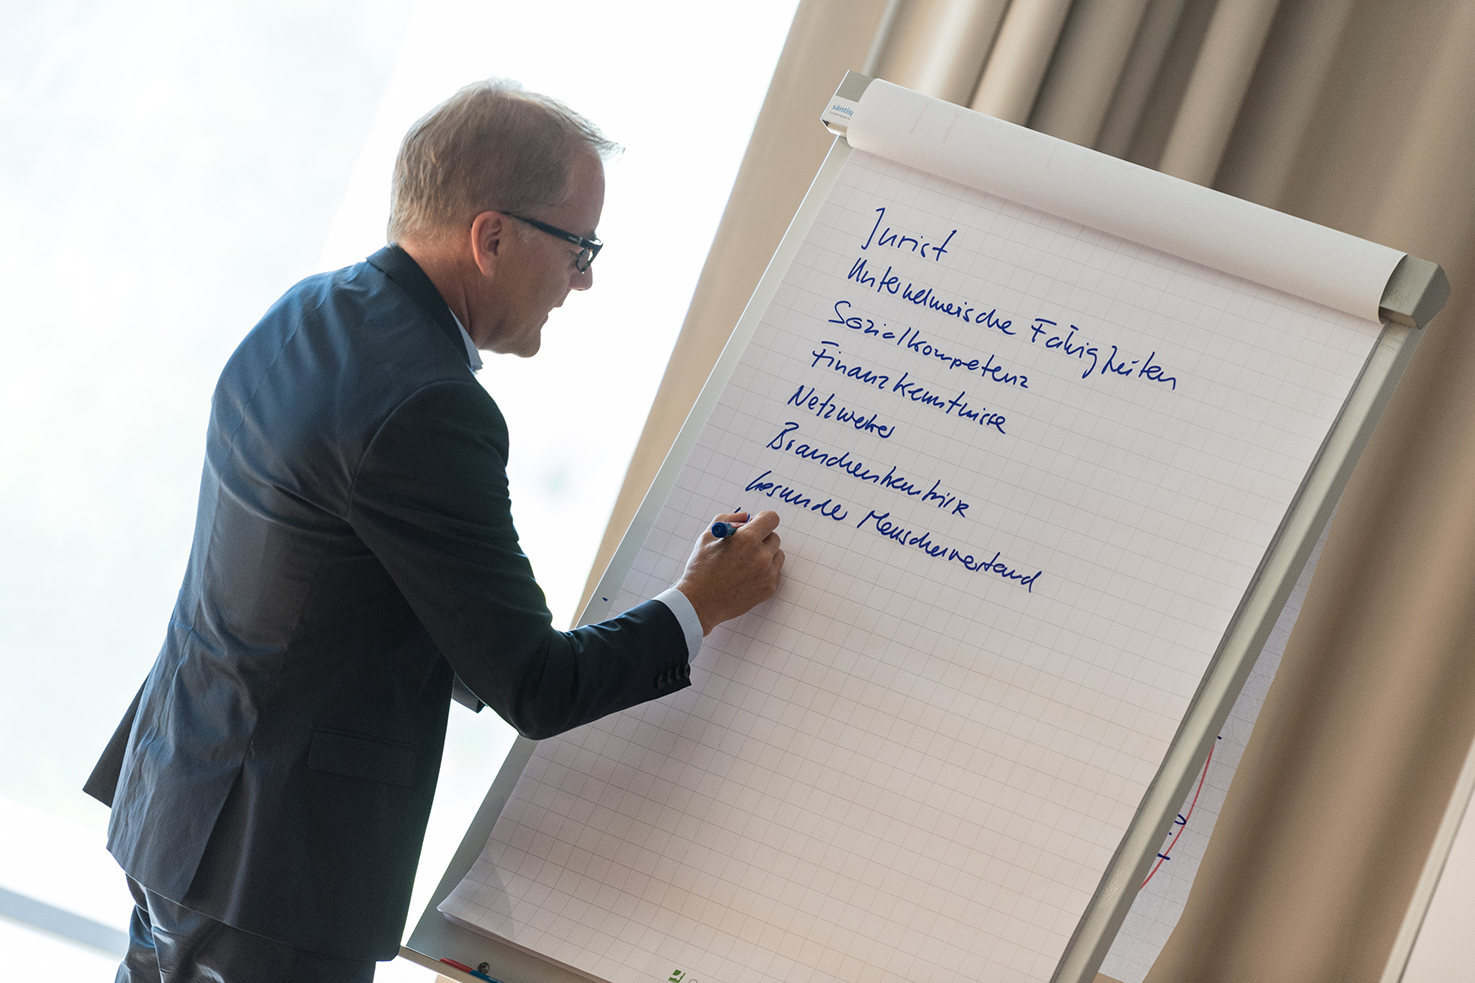 säntis
Jurist
Unternehmerische Fähigkeiten
Sozialkompetenz
Finanzkenntnisse
Netzwerker
Branchenkenntnisse
Gesunder Menschenverstand